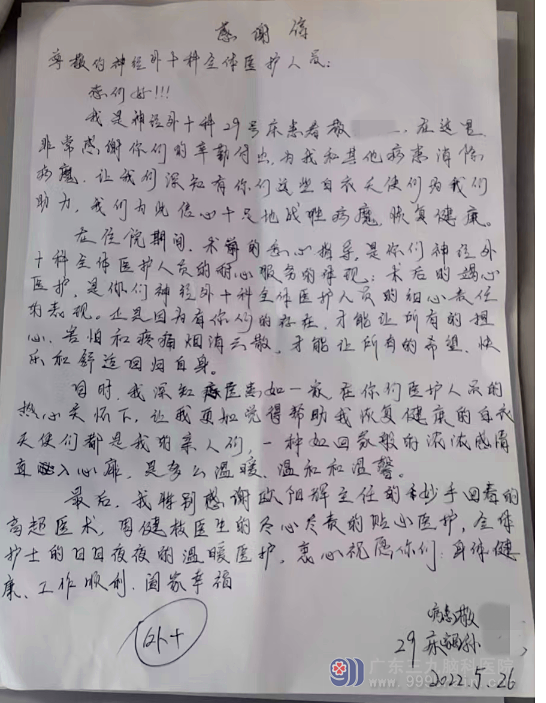 感谢信
尊敬的神经外十科全体医护人员:
您们好!!!
我是神经外十科29号床患者敬 在这里
非常感谢你们的辛勤付出,为我和其他病患消除
病魔,让我们深知有你们这些白衣天使们为我们
助力,我们为此信心十足地战胜病魔,恢复健康。
在住院期间,术前的悉心指导,是你们神经外
十科全体医护人员的耐心服务的体现;术后的竭心
医护,是你们神经外十科全体医护人员的细心责任
的表现。正是因为有你们的存在,才能让所有的担
心、害怕和疼痛烟消云散,才能让所有的希望、快
乐和舒适回归自身。
同时,我深知医患如一家,在你们医护人员的
热心关怀下,让我更加觉得帮助我恢复健康的白衣
天使们都是我的亲人们,一种如回家般的浓浓感情
直入心扉,是多么温暖、温和和温馨。
最后,我特别感谢欧阳辉主任的妙手回春的
高超医术,周健教医生的尽心尽责的贴心医护,全体
护士的日日夜夜的温暖医护,衷心祝愿你们:身体健
康、工作顺利、阖家幸福
外十
病患敬
29床
2022.5.26
广东三九脑科医院
www.999